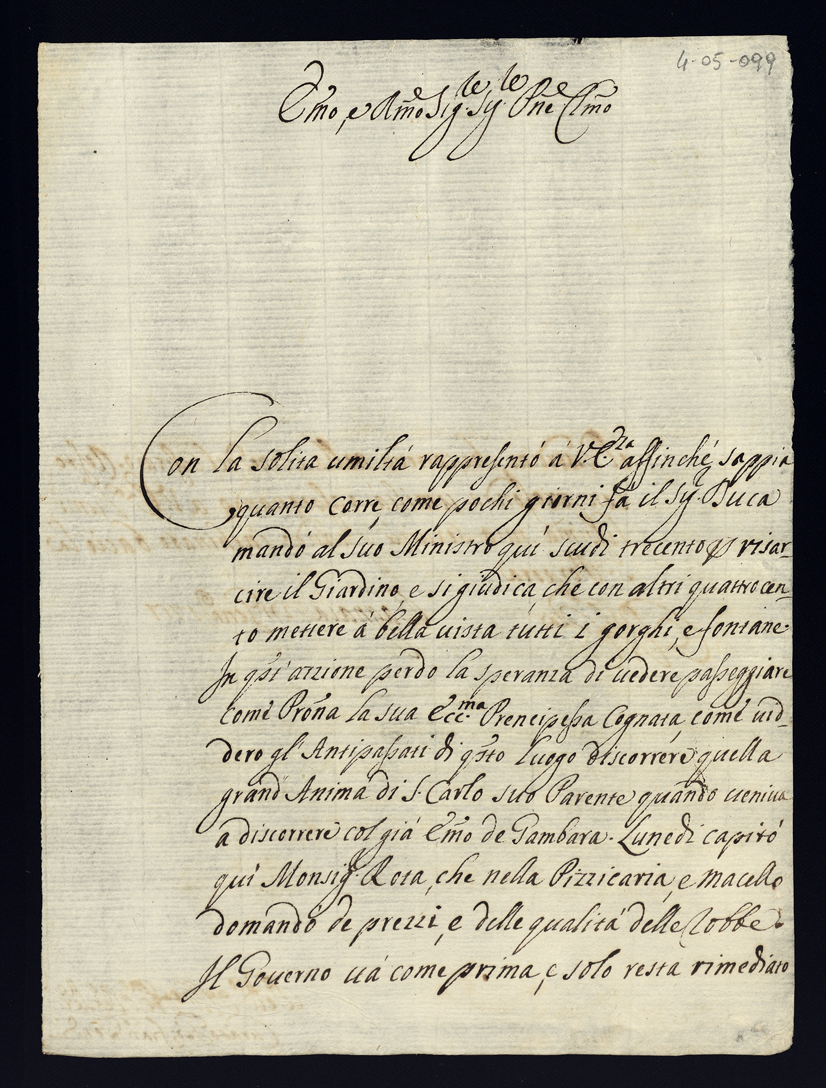 4-05-099
Em̃o, e Rm̃o Sig.re Sig.re Prñe Clm̃o
Con la solita umiltá rappresentó á V. E.za affinché sappia
quanto corre, come pochi giorni fá il Sig.r Duca
mandó al suo Ministro qui scudi trecento p risar-
cire il Giardino, e si giudica, che con altri quattrocen-
to mettere á bella vista tutti i gorghi, e fontane
In qst'azzione perdo la speranza di vedere passeggiare
come Proña la sua Ecc.ma Prencipessa Cognata, come vid-
dero gl'Antipassati di qsto luogo discorrere quella
grand'Anima di S. Carlo suo Parente quando veniva
a discorrere col giá Em̃o de Gambara. Lunedi capitó
qui Monsig.r Rota, che nella Pizzicaria, e macello
domandó de prezzi, e delle qualitá delle robbe.
Il Governo vá come prima, e solo resta rimediato